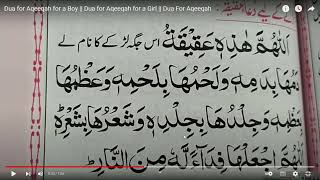 Dua for Aqeeqah for a Boy || Dua for Aqeeqah for a Girl || Dua For Aqeeqah
اَللّٰهُمَّ هٰذِهٖ عَقِیْقَةُ اس جگہ لڑکے کا نام لے
دَمُهَا بِدَمِهٖ وَلَحْمُهَا بِلَحْمِهٖ وَعَظْمُهَا
بِعَظْمِهٖ وَجِلْدُهَا بِجِلْدِهٖ وَشَعْرُهَا بِشَعْرِهٖ
اَللّٰهُمَّ اجْعَلْهَا فِدَآءً لَّهٗ مِنَ النَّارِ